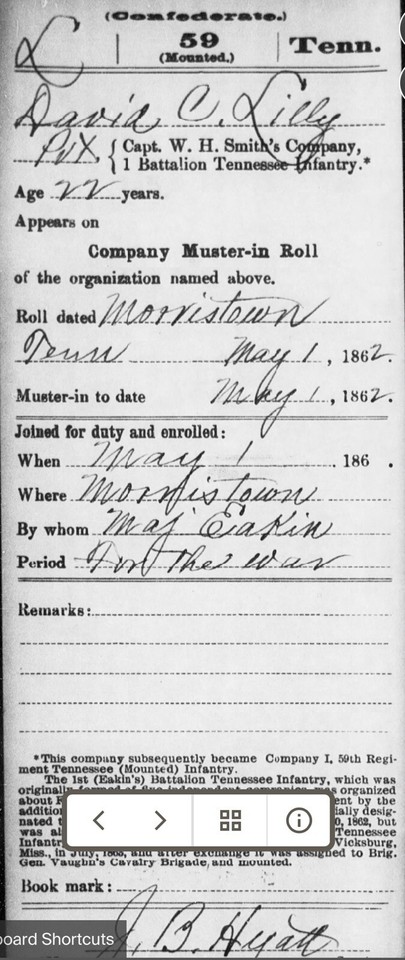 (Confederate.)
L | 59 | Tenn.
(Mounted.)
David C. Lilly
Pvt { Capt. W. H. Smith's Company,
1 Battalion Tennessee Infantry.*
Age 22 years.
Appears on
Company Muster-in Roll
of the organization named above.
Roll dated Morristown
Tenn May 1, 1862.
Muster-in to date May 1, 1862.
Joined for duty and enrolled:
When May 1, 186 .
Where Morristown
By whom Maj Eakin
Period For the war
Remarks:
*This company subsequently became Company I, 59th Regi-
ment Tennessee (Mounted) Infantry.
The 1st (Eakin's) Battalion Tennessee Infantry, which was
originally formed of five independent companies, was organized
about ent by the
addition ially desig-
nated 1862, but
was Tennessee
Infantr Vicksburg,
Miss., in July, 1863, and after exchange it was assigned to Brig.
Gen. Vaughn's Cavalry Brigade, and mounted.
Book mark:
J. B. Hyatt
board Shortcuts